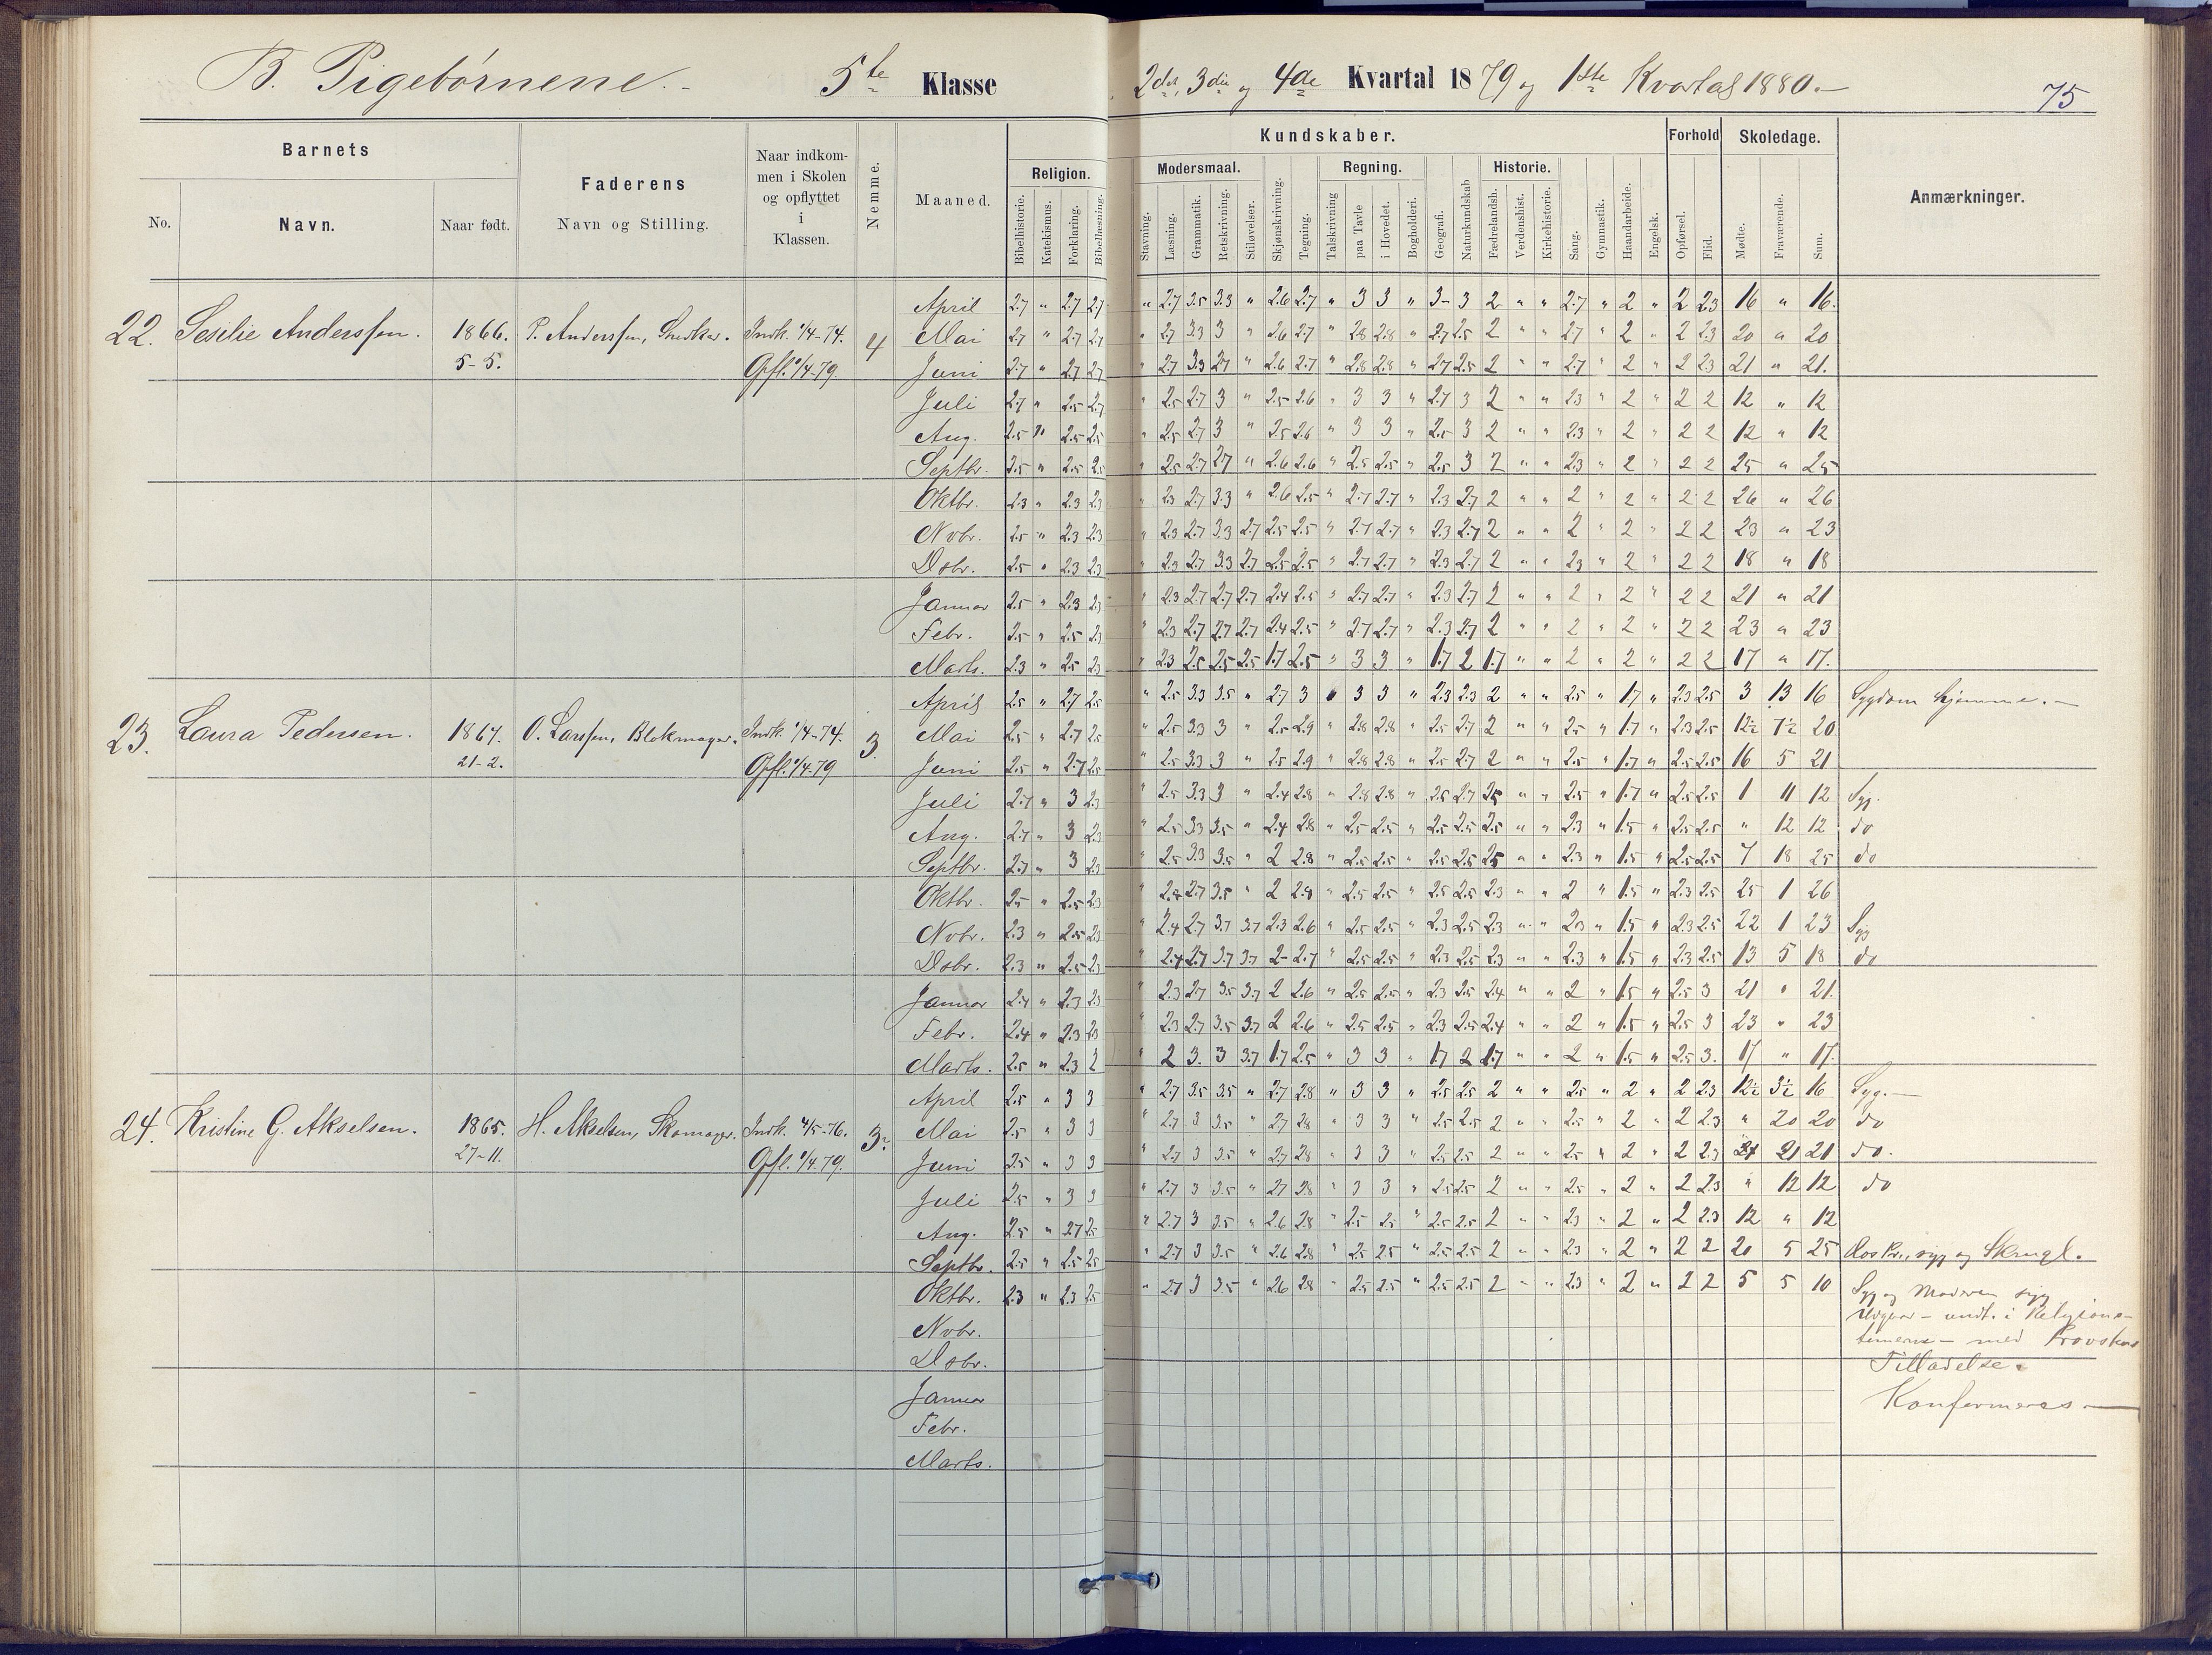 B. Pigebørnene.-
5te Klasse
2det, 3die og 4de Kvartal 1879 og 1ste Kvartal 1880.-
75
Barnets
No.
Navn.
Naar født.
Faderens
Navn og Stilling.
Naar indkom-
men i Skolen
og opflyttet
i
Klassen.
Nemme.
Maaned.
Kundskaber.
Religion.
Bibelhistorie.
Katekismus.
Forklaring.
Bibellæsning.
Modersmaal.
Stavning.
Læsning.
Grammatik.
Retskrivning.
Stiløvelser.
Skjønskrivning.
Tegning.
Regning.
Talskrivning
paa Tavle
i Hovedet.
Bogholderi.
Geografi.
Naturkundskab
Historie.
Fædrelandsh.
Verdenshist.
Kirkehistorie.
Sang.
Gymnastik.
Haandarbeide.
Engelsk.
Forhold
Opførsel.
Flid.
Skoledage.
Mødte.
Fraværende.
Sum.
Anmærkninger.
22. Sesilie Anderssen. 1866. 5-5. P. Anderssen, Snedker. Indk. 1/4-74. Opfl. 1/4-79 4
April 2.7 " 2.7 2.7 " 2.7 3.5 3.3 " 2.6 2.7 " 3 3 " 3- 3 2 " " 2.7 " 2 " 2 2.3 16 " 16.
Mai 2.7 " 2.7 2.7 " 2.7 3.3 3 " 2.6 2.7 " 2.8 2.8 " 2.7 2.5 2 " " 2.7 " 2 " 2 2.3 20 " 20
Juni 2.7 " 2.7 2.7 " 2.7 3.3 2.7 " 2.6 2.7 " 2.8 2.8 " 2.7 2.5 2 " " 2.7 " 2 " 2 2.3 21 " 21.
Juli 2.7 " 2.5 2.7 " 2.5 2.7 3 " 2.5 2.6 " 3 3 " 2.7 3 2 " " 2.3 " 2 " 2 2 12 " 12
Aug. 2.5 " 2.5 2.5 " 2.5 2.7 3 " 2.5 2.6 " 3 3 " 2.5 3 2 " " 2.3 " 2 " 2 2 12 " 12
Septbr. 2.5 " 2.5 2.5 " 2.5 2.7 2.7 " 2.6 2.6 " 2.5 2.5 " 2.5 3 2 " " 2.3 " 2 " 2 2 25 " 25
Oktbr. 2.3 " 2.3 2.3 " 2.3 2.7 3.3 " 2.6 2.5 " 2.7 2.7 " 2.3 2.7 2 " " 2 " 2 " 2 2 26 " 26
Novbr. 2.5 " 2.3 2.3 " 2.3 2.7 3.3 2.7 2.5 2.5 " 2.7 2.7 " 2.3 2.7 2 " " 2 " 2 " 2 2 23 " 23
Dsbr. 2.5 " 2.3 2.3 " 2.3 2.7 3.3 2.7 2.5 2.5 " 2.7 2.7 " 2.3 2.7 2 " " 2.3 " 2 " 2 2 18 " 18
Januar 2.5 " 2.3 2.3 " 2.3 2.7 2.7 2.7 2.4 2.5 " 2.7 2.7 " 2.3 2.7 2 " " 2 " 2 " 2 2 21 " 21
Febr. 2.5 " 2.5 2.3 " 2.3 2.7 2.7 2.7 2.4 2.5 " 2.7 2.7 " 2.3 2.7 2 " " 2 " 2 " 2 2 23 " 23
Marts. 2.3 " 2.5 2.3 " 2.3 2.5 2.5 2.5 1.7 2.5 " 3 3 " 1.7 2 1.7 " " 2 " 2 " 2 2 17 " 17.
23. Laura Pedersen. 1867. 21-2. O. Larssen, Blokmager. Indk. 1/4-74. Opfl. 1/4-79 3.
April 2.5 " 2.7 2.5 " 2.5 3.3 3.5 " 2.7 3 " 3 3 " 2.3 2.3 2 " " 2.5 " 1.7 " 2.3 2.5 3 13 16 Sygdom hjemme.-
Mai 2.5 " 2.7 2.5 " 2.5 3.3 3 " 2.5 2.9 " 2.8 2.8 " 2.5 2.7 2 " " 2.5 " 1.7 " 2.3 2.5 12½ 7½ 20
Juni 2.5 " 2.7 2.5 " 2.5 3.3 3 " 2.5 2.9 " 2.8 2.8 " 2.5 2.7 2 " " 2.5 " 1.7 " 2.5 2.5 16 5 21
Juli 2.7 " 3 2.3 " 2.5 3.3 3 " 2.4 2.8 " 2.8 2.8 " 2.5 2.7 2.5 " " 2.5 " 1.7 " 2.5 2.5 1 11 12 Syg.
Aug. 2.7 " 3 2.3 " 2.5 3.3 3.5 " 2.4 2.8 " 2.5 2.5 " 2.5 2.5 2.5 " " 2.3 " 1.5 " 2.5 2.5 " 12 12 do
Septbr. 2.7 " 3 2.3 " 2.5 3.3 3.5 " 2 2.8 " 2.5 2.5 " 2.5 2.5 2.5 " " 2.3 " 1.5 " 2.5 2.5 7 18 25 do
Oktbr. 2.5 " 2.5 2.3 " 2.4 2.7 3.5 " 2 2.8 " 2.5 2.5 " 2.5 2.5 2.3 " " 2 " 1.5 " 2.3 2.5 25 1 26
Novbr. 2.3 " 2.5 2.3 " 2.4 2.7 3.7 3.7 2.3 2.6 " 2.5 2.5 " 2.3 2.5 2.3 " " 2.3 " 1.5 " 2.3 2.5 22 1 23 Syg
Dsbr. 2.3 " 2.5 2.3 " 2.4 2.7 3.7 3.7 2- 2.7 " 2.5 2.5 " 2.3 2.5 2.3 " " 2.3 " 1.5 " 2.3 2.5 13 5 18 do
Januar 2.4 " 2.3 2.3 " 2.3 2.7 3.5 3.7 2 2.6 " 2.5 2.5 " 2.3 2.5 2.4 " " 2 " 1.5 " 2.5 3 21 " 21.
Febr. 2.4 " 2.3 2.3 " 2.3 2.7 3.5 3.7 2 2.6 " 2.5 2.5 " 2.3 2.5 2.4 " " 2 " 1.5 " 2.5 3 23 " 23
Marts. 2.5 " 2.3 2 " 2 3. 3 3.7 1.7 2.5 " 3 3 " 1.7 2 1.7 " " 2 " 1.5 " 2.5 3. 17 " 17.
24. Kristine G. Akselsen. 1865. 27-11. H. Akselsen, Skomager. Indk. 4/5-76. Opfl. 1/4.79. 3.
April 2.5 " 3 3 " 2.7 3.5 3.5 " 2.7 2.8 " 3 3 " 2.5 2.5 2 " " 2.5 " 2 " 2 2.3 12½ 3½ 16 Syg.-
Mai 2.5 " 3 3 " 2.7 3 3.5 " 2.7 2.8 " 3 3 " 2.5 2.5 2 " " 2.5 " 2 " 2 2.3 " 20 20 do
Juni 2.5 " 3 3 " 2.7 3 3.5 " 2.7 2.8 " 3 3 " 2.5 2.5 2 " " 2.5 " 2 " 2 2.3 21 21 do.
Juli 2.5 " 3 3 " 2.7 3 3.5 " 2.7 2.8 " 3 3 " 2.5 2.5 2 " " 2.5 " 2 " 2 2.3 " 12 12 do
Aug. 2.5 " 2.7 2.5 " 2.7 3 3.5 " 2.6 2.8 " 2.5 2.5 " 2.5 2.5 2 " " 2.3 " 2 " 2 2.3 12 " 12
Septbr. 2.5 " 2.5 2.5 " 2.7 3 3.5 " 2.6 2.8 " 2.5 2.5 " 2.5 2.5 2 " " 2.3 " 2 " 2 2 20 5 25 syg og Skrugl.
Oktbr. 2.3 " 2.3 2.5 " 2.7 3 3.5 " 2.6 2.8 " 2.5 2.5 " 2.5 2.5 2 " " 2.3 " 2 " 2 2 5 5 10 Syg og Moderen syg
Novbr. - undt. i Religions-
timerne - med Provstens
Dsbr. Tilladelse.
Januar Konfirmeres-
Febr.
Marts.